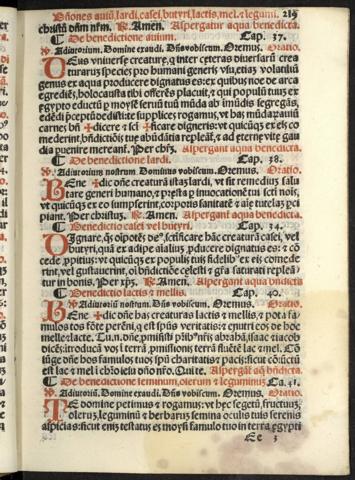 Bñones auiũ, lardi, casei, butyri, lactis, mel. & legumi. 219
christũ dñm nr̃m. ℟. Amen. Alpergatur aqua benedicta.
¶ De benedictione auium. Cap. 37.
℣. Adiutorium. Domine exaudi. Dñs vobiscum. Oremus. Oratio.
DEus vniuerse creature, q̃ inter ceteras diuersarũ crea
turarum species pro humani generis vsu, etiã volatiliũ
genus ex aqua producere dignatus es: ex quibus noe de arca
egrediẽs, holocausta tibi offerẽs placuit, & qui populũ tuum ex
egypto eductũ p moysẽ seruũ tuũ mũda ab ĩmũdis segregãs,
edẽdi p̃ceptũ dedisti: te supplices rogamus, vt has mũdarũ auiũ
carnes bñ✠dicere & sct̃✠ficare digneris: vt quicũqz ex eis co
mederint, bñdictiõis tue abũdãtia repleãt̃, & ad eterne vite gau
dia puenire mereant̃. Per chr̃m. Alpergant̃ aqua benedicta.
¶ De benedictione lardi. Cap. 38.
℣. Adiutorium nostrum. Dominus vobiscum. Oremus. Oratio.
BEne✠dic dñe creaturã istã lardi, vt sit remediũ salu
tare generi humano, & p̃sta p inuocationẽ tui scti nois,
vt quicũqz ex eo sumpserint, corporis sanitatẽ & aĩe tutelaʒ p̃ci
piant. Per christum. ℟. Amen. Alpergant̃ aqua benedicta.
¶ Benedictio casei vel butyri. Cap. 39.
DIgnare, q̃s oĩpotẽs de⁹, sct̃ificare hãc creaturã casei, vel
butyri, quã ex adipe aĩaliuʒ pducere dignatus es: & cõ
cede, ppitius: vt quicũqz ex populis tuis fidelib⁹ ex eis comede
rint, vel gustauerint, oĩ bñdictiõe celesti & gr̃a saturati repleã
tur in bonis. Per xp̃m. ℟. Amen. Alpergant̃ aqua bñdicta
¶ Benedictio lactis & mellis. Cap. 40.
℣. Adiutoriũ nostrum. Dñs vobiscum. Oremus. Oratio.
BEne✠dic dñe has creaturas lactis & mellis, & pota fa
mulos tos fõte perẽni, q est spũs veritatis: & enutri eos de hoc
melle & lacte. Tu.n.dñe, pmisisti prĩb⁹ nr̃is abrahã, isaac & iacob
dicẽs: ĩtroducã vos ĩ terrã pmissionis, terrã fluẽtẽ lac & mel. Cõ
iũge dñe hos famulos tuos spũi charitatis & pacis: sicut cõiũctũ
est lac & mel ĩ chr̃o iesu dño nr̃o. Qui te. Alpergãt̃ aq̃ bñdicta.
¶ De benedictione seminum, olerum & leguminũ. Ca. 41.
℣. Adiutoriũ. Domine exaudi. Dñs vobiscum. Oremus. Oratio.
TE domine petimus & rogamus: vt hec segetũ, fructuũ,
olerũ, leguminũ & herbarũ semina oculis tuis serenis
aspicias: sicut enĩ testatus es moysi famulo tuo in terra egypti
Ee 3